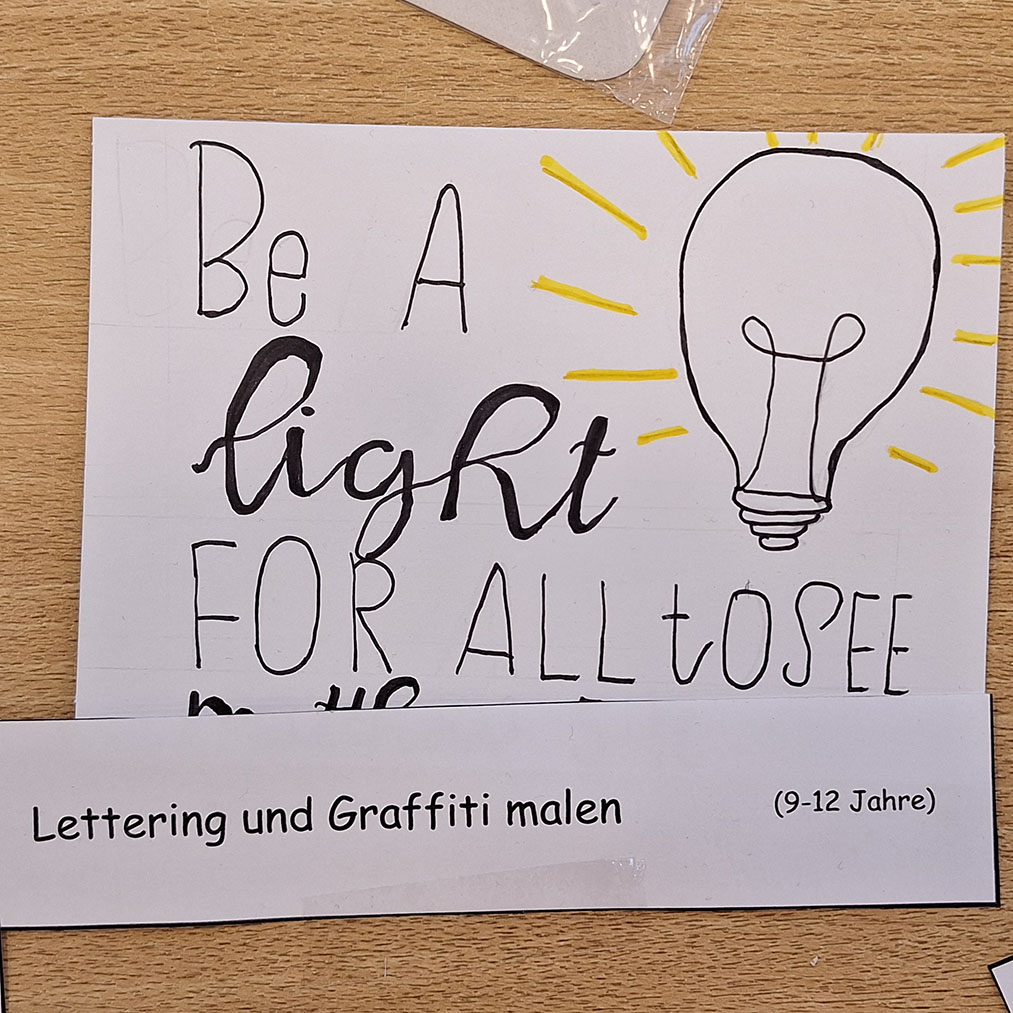 Be A
light
FOR ALL tO SEE
Lettering und Graffiti malen (9-12 Jahre)